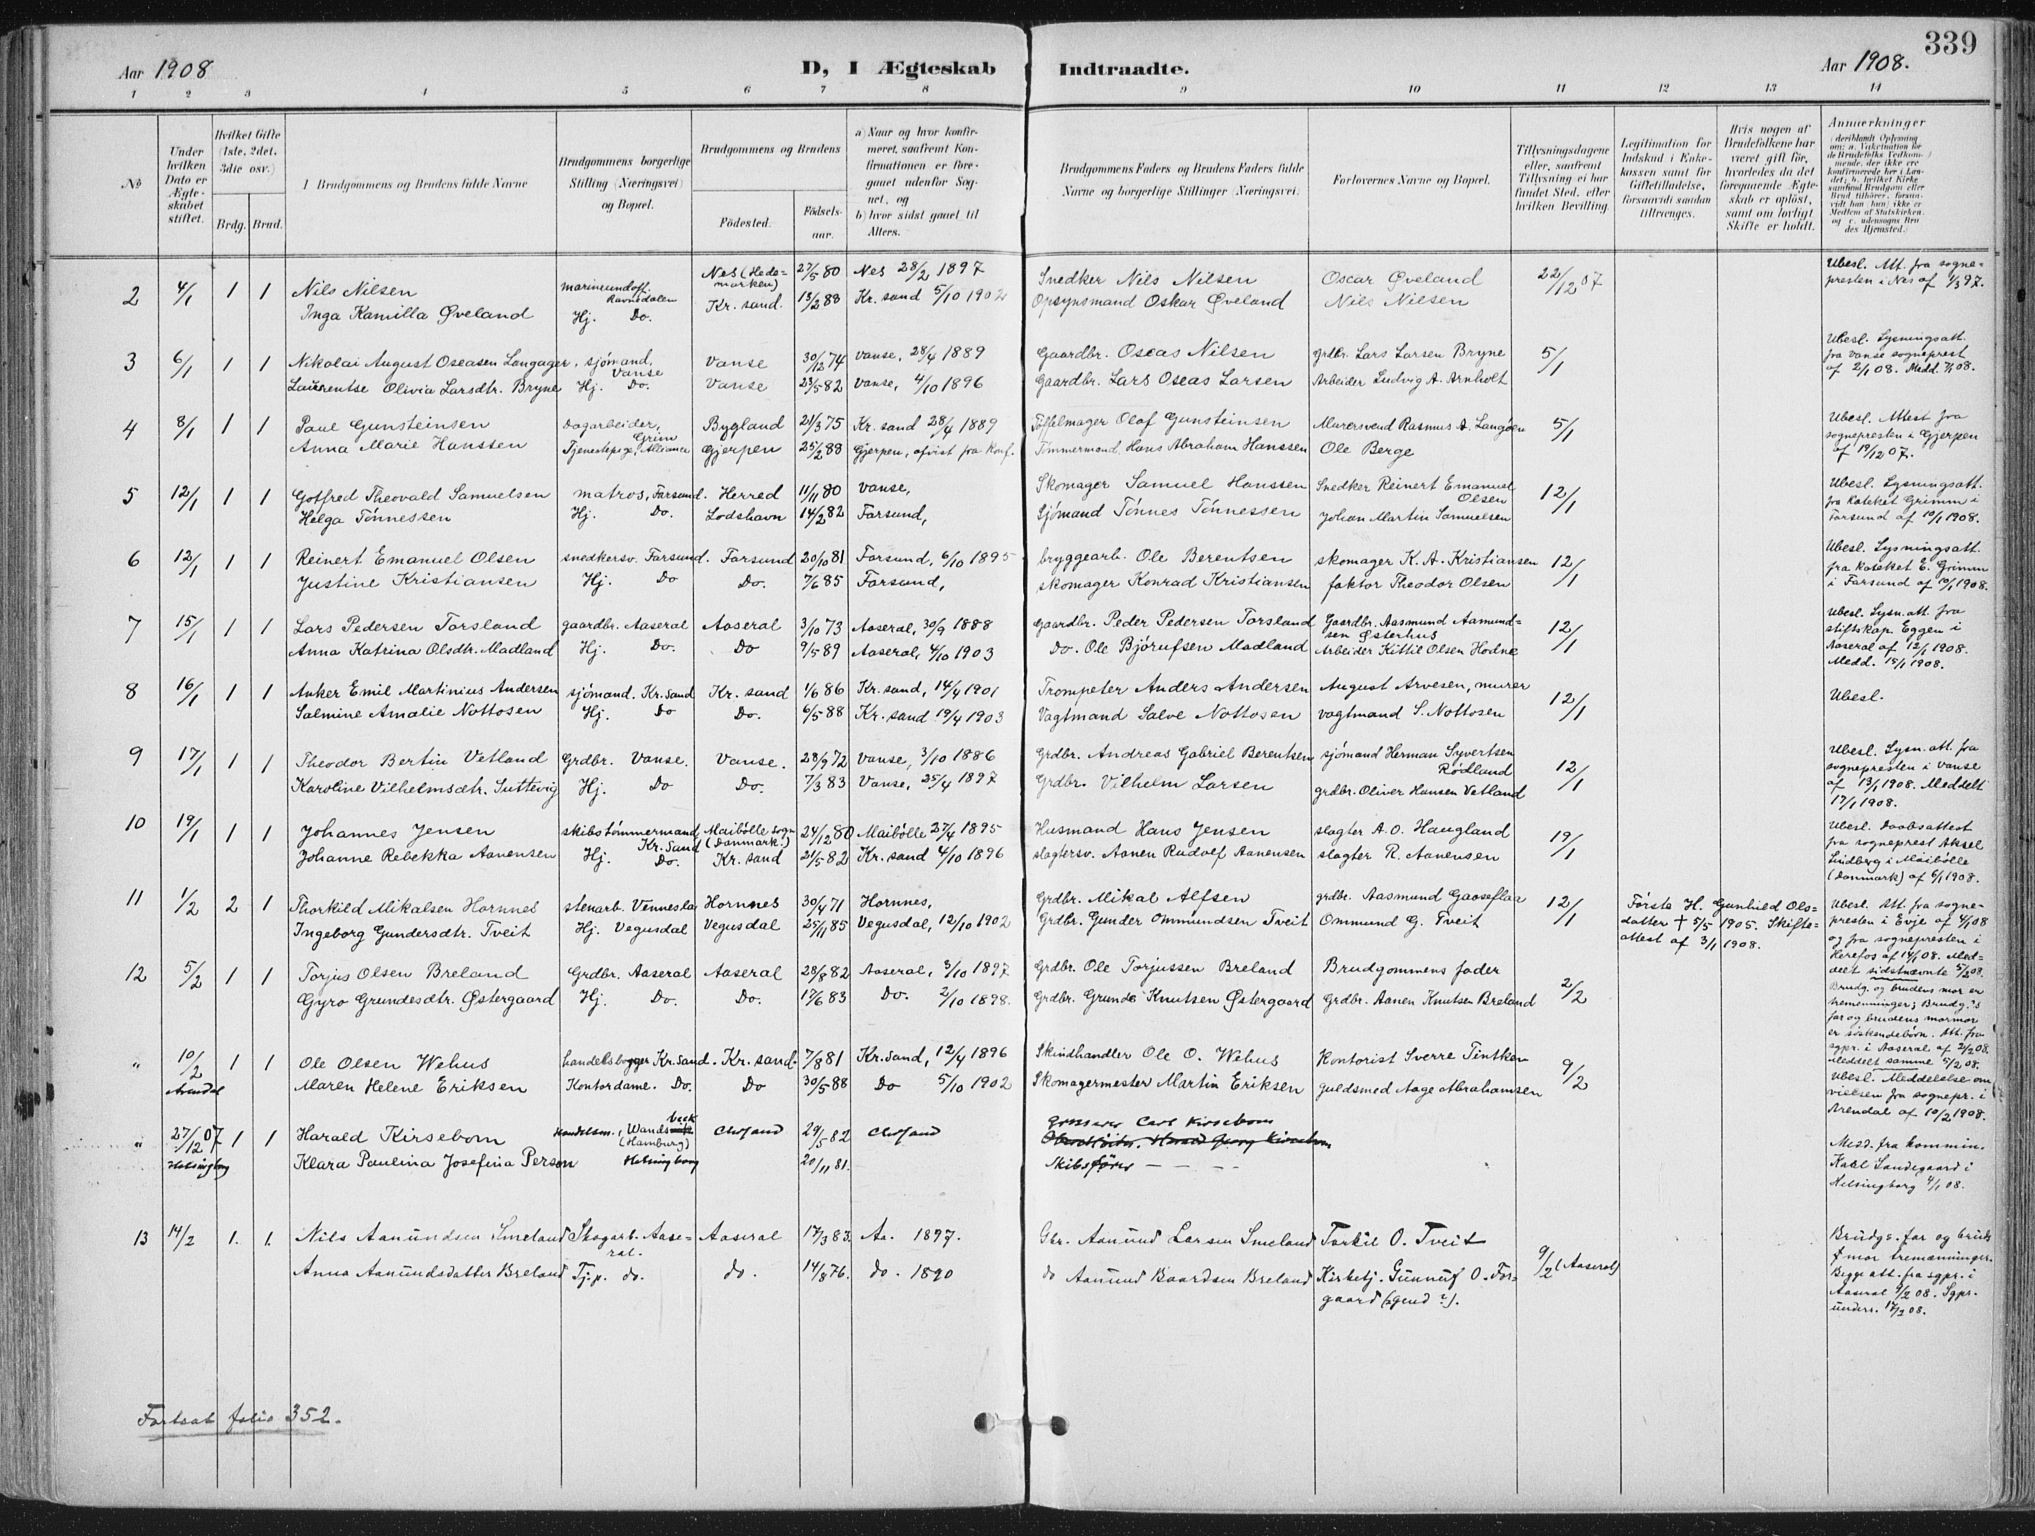 339
Aar 1908
D, I Ægteskab Indtraadte.
Aar 1908.
1 2 3 4 5 6 7 8 9 10 11 12 13 14
No
Under hvilken Dato er Ægteskabet stiftet.
Hvilket Gifte (1ste, 2det, 3dte osv.)
Brdg. Brud.
1 Brudgommens og Brudens fulde Navne
Brudgommens borgerlige Stilling (Næringsvei) og Bopæl.
Brudgommens og Brudens
Födested. Födsels-aar.
a) Naar og hvor konfirmeret, saafremt Konfirmationen er foregaaet udenfor Sognet, og
b) hvor sidst gaaet til Alters.
Brudgommens Faders og Brudens Faders fulde Navne og borgerlige Stillinger (Næringsvei).
Forlovernes Navne og Bopæl.
Tillysningsdagene eller, saafremt Tillysning ei har fundet Sted, efter hvilken Bevilling.
Legitimation for Indskud i Enkekassen samt for Giftetilladelse, forsaavidt saadan tiltrænges.
Hvis nogen af Brudefolkene har været gift før, hvorledes da det foregaaende Ægteskab er opløst, samt om lovligt Skifte er holdt.
Anmærkninger
(deriblandt Oplysning om: a. Vakcination for de Brudefolks Vedkommende, der ikke ere konfirmerede her i Landet; b. hvilket Kirkesamfund Brudgom eller Brud tilhører, forsaavidt han (hun) ikke er Medlem af Statskirken, og c. udensogns Brudes Hjemsted.)
2 4/1 1 1 Nils Nilsen marineundoff. Ravnsdalen Nes (Hedemarken) 27/5 80 Nes 28/2 1897 Snedker Nils Nilsen Oscar Øveland 22/12 07 Ubesl. Att. fra sognepresten i Nes af 1/3 97.
Inga Kamilla Øveland Hj. Do. Kr. sand. 13/2 88 Kr. sand 5/10 1902 Opsynsmand Oskar Øveland Nils Nilsen
3 6/1 1 1 Nikolai August Oseasen Langager, sjömand, Vanse Vanse 30/12 74 Vanse, 28/4 1889 Gaardbr. Oseas Nilsen grdbr. Lars Larsen Bryne 5/1 Ubesl. Lysningsatt. fra Vanse sogneprest af 2/1 08. Medd. 7/1 08.
Laurentse Olivia Larsdtr. Bryne Hj. Do. Vanse 23/5 82 Vanse, 4/10 1896 Gaardbr. Lars Oseas Larsen Arbeider Ludvig A. Arnholt
4 8/1 1 1 Paul Gunsteinsen Dagarbeider, Grim Bygland 21/3 75 Kr. sand 28/4 1889 Töffelmager Olaf Gunsteinsen Murersvend Rasmus A. Langøen 5/1 Ubesl. Attest fra sognepresten i Gjerpen af 19/12 07.
Anna Marie Hanssen Tjenestepige, Alliance Gjerpen 25/2 88 Gjerpen, afvist fra Konf. Tømmermand Hans Abraham Hanssen Ole Berge
5 12/1 1 1 Gotfred Theovald Samuelsen matros, Farsund. Herred 11/11 80 Vanse, Skomager Samuel Hanssen Snedker Reinert Emanuel Olsen 12/1 Ubesl. Lysningsatt. fra Kateket Grimm i Farsund af 10/1 1908.
Helga Tönnessen Hj. Do. Lodshavn 14/2 82 Farsund, Sjömand Tönnes Tönnessen Johan Martin Samuelsen
6 12/1 1 1 Reinert Emanuel Olsen snedkersv. Farsund. Farsund 20/10 81 Farsund, 6/10 1895 bryggearb. Ole Berentsen skomager K. A. Kristiansen 12/1 Ubesl. Lysningsatt. fra Kateket E. Grimm i Farsund af 10/1 1908.
Justine Kristiansen Hj. Do Do. 7/6 85 Farsund, skomager Konrad Kristiansen faktor Theodor Olsen
7 15/1 1 1 Lars Pedersen Torsland gaardbr. Aaseral Aaseral 3/10 73 Aaseral, 30/9 1888 gaardbr. Peder Pedersen Torsland Gaardbr. Aasmund Aamundsen Østerhus 12/1 Ubesl. Lysn. att. fra stiftskap. Eggen i Aaseral af 12/1 1908. Medd. 15/1 1908.
Anna Katrina Olsdtr. Madland Hj. Do. Do 9/5 89 Aaseral, 4/10 1903 Do. Ole Björufsen Madland Arbeider Kittil Olsen Hodne
8 16/1 1 1 Anker Emil Martinius Andersen sjömand. Kr. Sand Kr. sand 1/6 86 Kr. sand, 14/4 1901 Trompeter Anders Andersen August Arvesen, murer 12/1 Ubesl.
Salmine Amalie Nottosen Hj. Do Do. 6/5 88 Kr. sand 19/4 1903 Vagtmand Salve Nottosen vagtmand S. Nottosen
9 17/1 1 1 Theodor Bertin Vetland Grdbr. Vanse. Vanse. 28/9 72 Vanse, 3/10 1886 Grdbr. Andreas Gabriel Berentsen sjömand Herman Syvertsen Rødland 12/1 Ubesl. Lysn. att. fra sognepresten i Vanse af 13/1 1908. Meddelt 17/1 1908.
Karoline Vilhelmsdtr. Suttevig Hj. Do Do. 7/3 83 Vanse, 25/4 1897 Grdbr. Vilhelm Larsen grdbr. Oliver Hansen Vetland
10 19/1 1 1 Johannes Jensen skibstömmermand Kr. Sand Maibölle sogn (Danmark.) 24/12 80 Maibölle 27/4 1895 Husmand Hans Jensen slagter A. O. Haugland 19/1 Ubesl. Daabsattest fra sogneprest Aksel Lindberg i Maibölle (Danmark) af 6/1 1908.
Johanne Rebekka Aanensen Hj. Do. Kr. sand 21/5 82 Kr. sand 4/10 1896 slagtersv. Aanen Rudolf Aanensen slagter R. Aanensen
11 1/2 2 1 Thorkild Mikalsen Hornnes stenarb. Vennesla Hornnes 30/4 71 Hornnes, Grdbr. Mikal Alfsen grdbr. Aasmund Gaaseflaa 12/1 Første H. Gunhild Olsdatter † 5/5 1905. Skifteattest af 3/1 1908. Ubesl. Att. fra sognepresten i Evje af 4/1 08 og fra sognepresten i Herefos af 14/1 08. Meddelt sidstnævnte 5/2 08.
Ingeborg Gundersdtr. Tveit Hj. Vegusdal Vegusdal 25/11 85 Vegusdal, 12/10 1902 Grdbr. Gunder Ommundsen Tveit Ommund G. Tveit
12 5/2 1 1 Torjus Olsen Breland Grdbr. Aaseral Aaseral 28/8 82 Aaseral, 3/10 1897 Grdbr. Ole Torjussen Breland Brudgommens fader 2/2 Brudg. og brudens mor er tremenninger; Brudg.s far og brudens mormor er söskendebörn. Att. fra sgpr. i Aaseral af 2/2 08. Meddelt samme 5/2 08.
Gyro Grundesdtr. Østergaard Hj. Do. Do. 17/6 83 Do. 2/10 1898. Grdbr. Grunde Knutsen Østergaard Grdbr. Aanen Knutsen Breland
" 10/2 Arendal 1 1 Ole Olsen Wehus handelsbogger Kr. sand. Kr. sand. 7/8 81 Kr. Sand, 12/4 1896 Skindhandler Ole O. Wehus Kontorist Sverre Tintken 9/2 Ubesl. Meddelelse om vielsen fra sognepr. i Arendal af 10/2 1908.
Maren Helene Eriksen Kontordame. Do. Do 30/5 88 Do 5/10 1902 Skomagermester Martin Eriksen guldsmed Aage Abrahamsen
" 27/12 07 Helsingborg 1 1 Harald Kirsebom Handelsm., Wandsbeck (Hamburg) Chrsand 24/5 82 Chrsand Grosserer Carl Kirsebom Med. fra kommin. Karl Landegaard i Helsingborg 4/1 08.
Klara Paulina Josefina Person Helsingborg 20/11 81. Skibsfører — — — —
13 14/2 1. 1. Nils Aanundsen Smeland Skogarb. Aaseral. Aaseral 17/3 83. Aa. 1897. Gbr. Aanund Larsen Smeland Torkil O. Tveit 9/2 (Aaseral) Brudgs. far og bruds mor tremænninger. Begge att. fra sgpr. i Aaseral 9/2 08. Sgpr. underr. 17/2 08.
Anna Aanundsdatter Breland Tj.p. do. do. 14/8 76. do. 1890 do Aanund Baardsen Breland Kirketj. Gunnuf O. Forgaard (sgend?).
Fortsat folio 352.